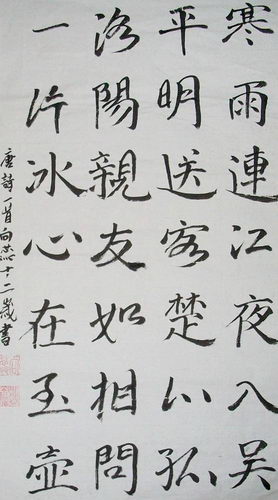 寒雨連江夜入吴
平明送客楚山孤
洛陽親友如相問
一片冰心在玉壺
唐詩一首向 十二歲書